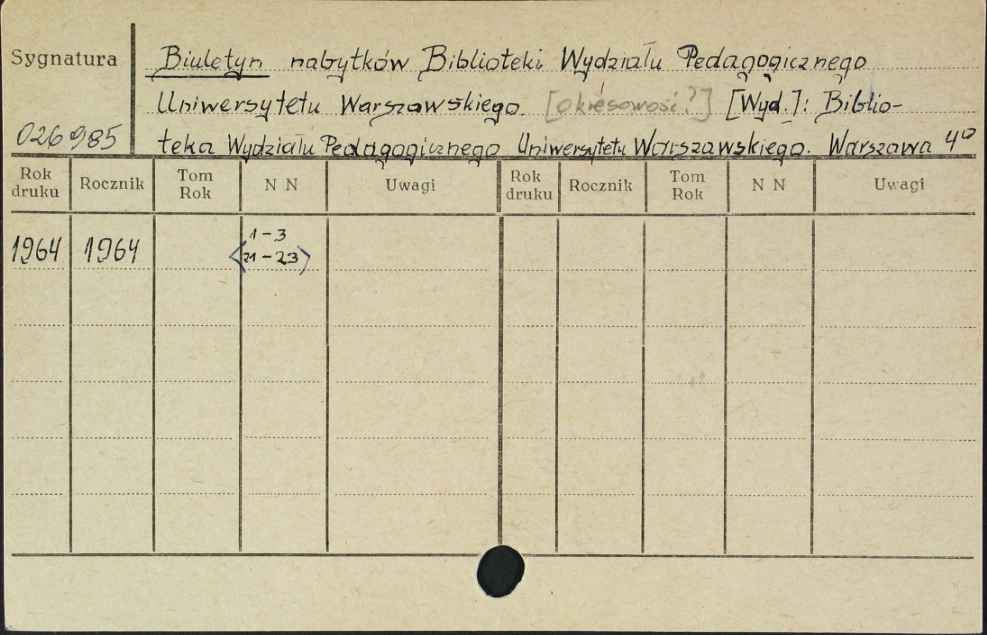 Sygnatura
Biuletyn nabytków Biblioteki Wydziału Pedagogicznego
Uniwersytetu Warszawskiego. [okresowość?] [Wyd.]: Biblio-
026985 teka Wydziału Pedagogicznego Uniwersytetu Warszawskiego. Warszawa 4º
Rok druku Rocznik Tom Rok N N Uwagi Rok druku Rocznik Tom Rok N N Uwagi
1964 1964 1-3
<21-23>